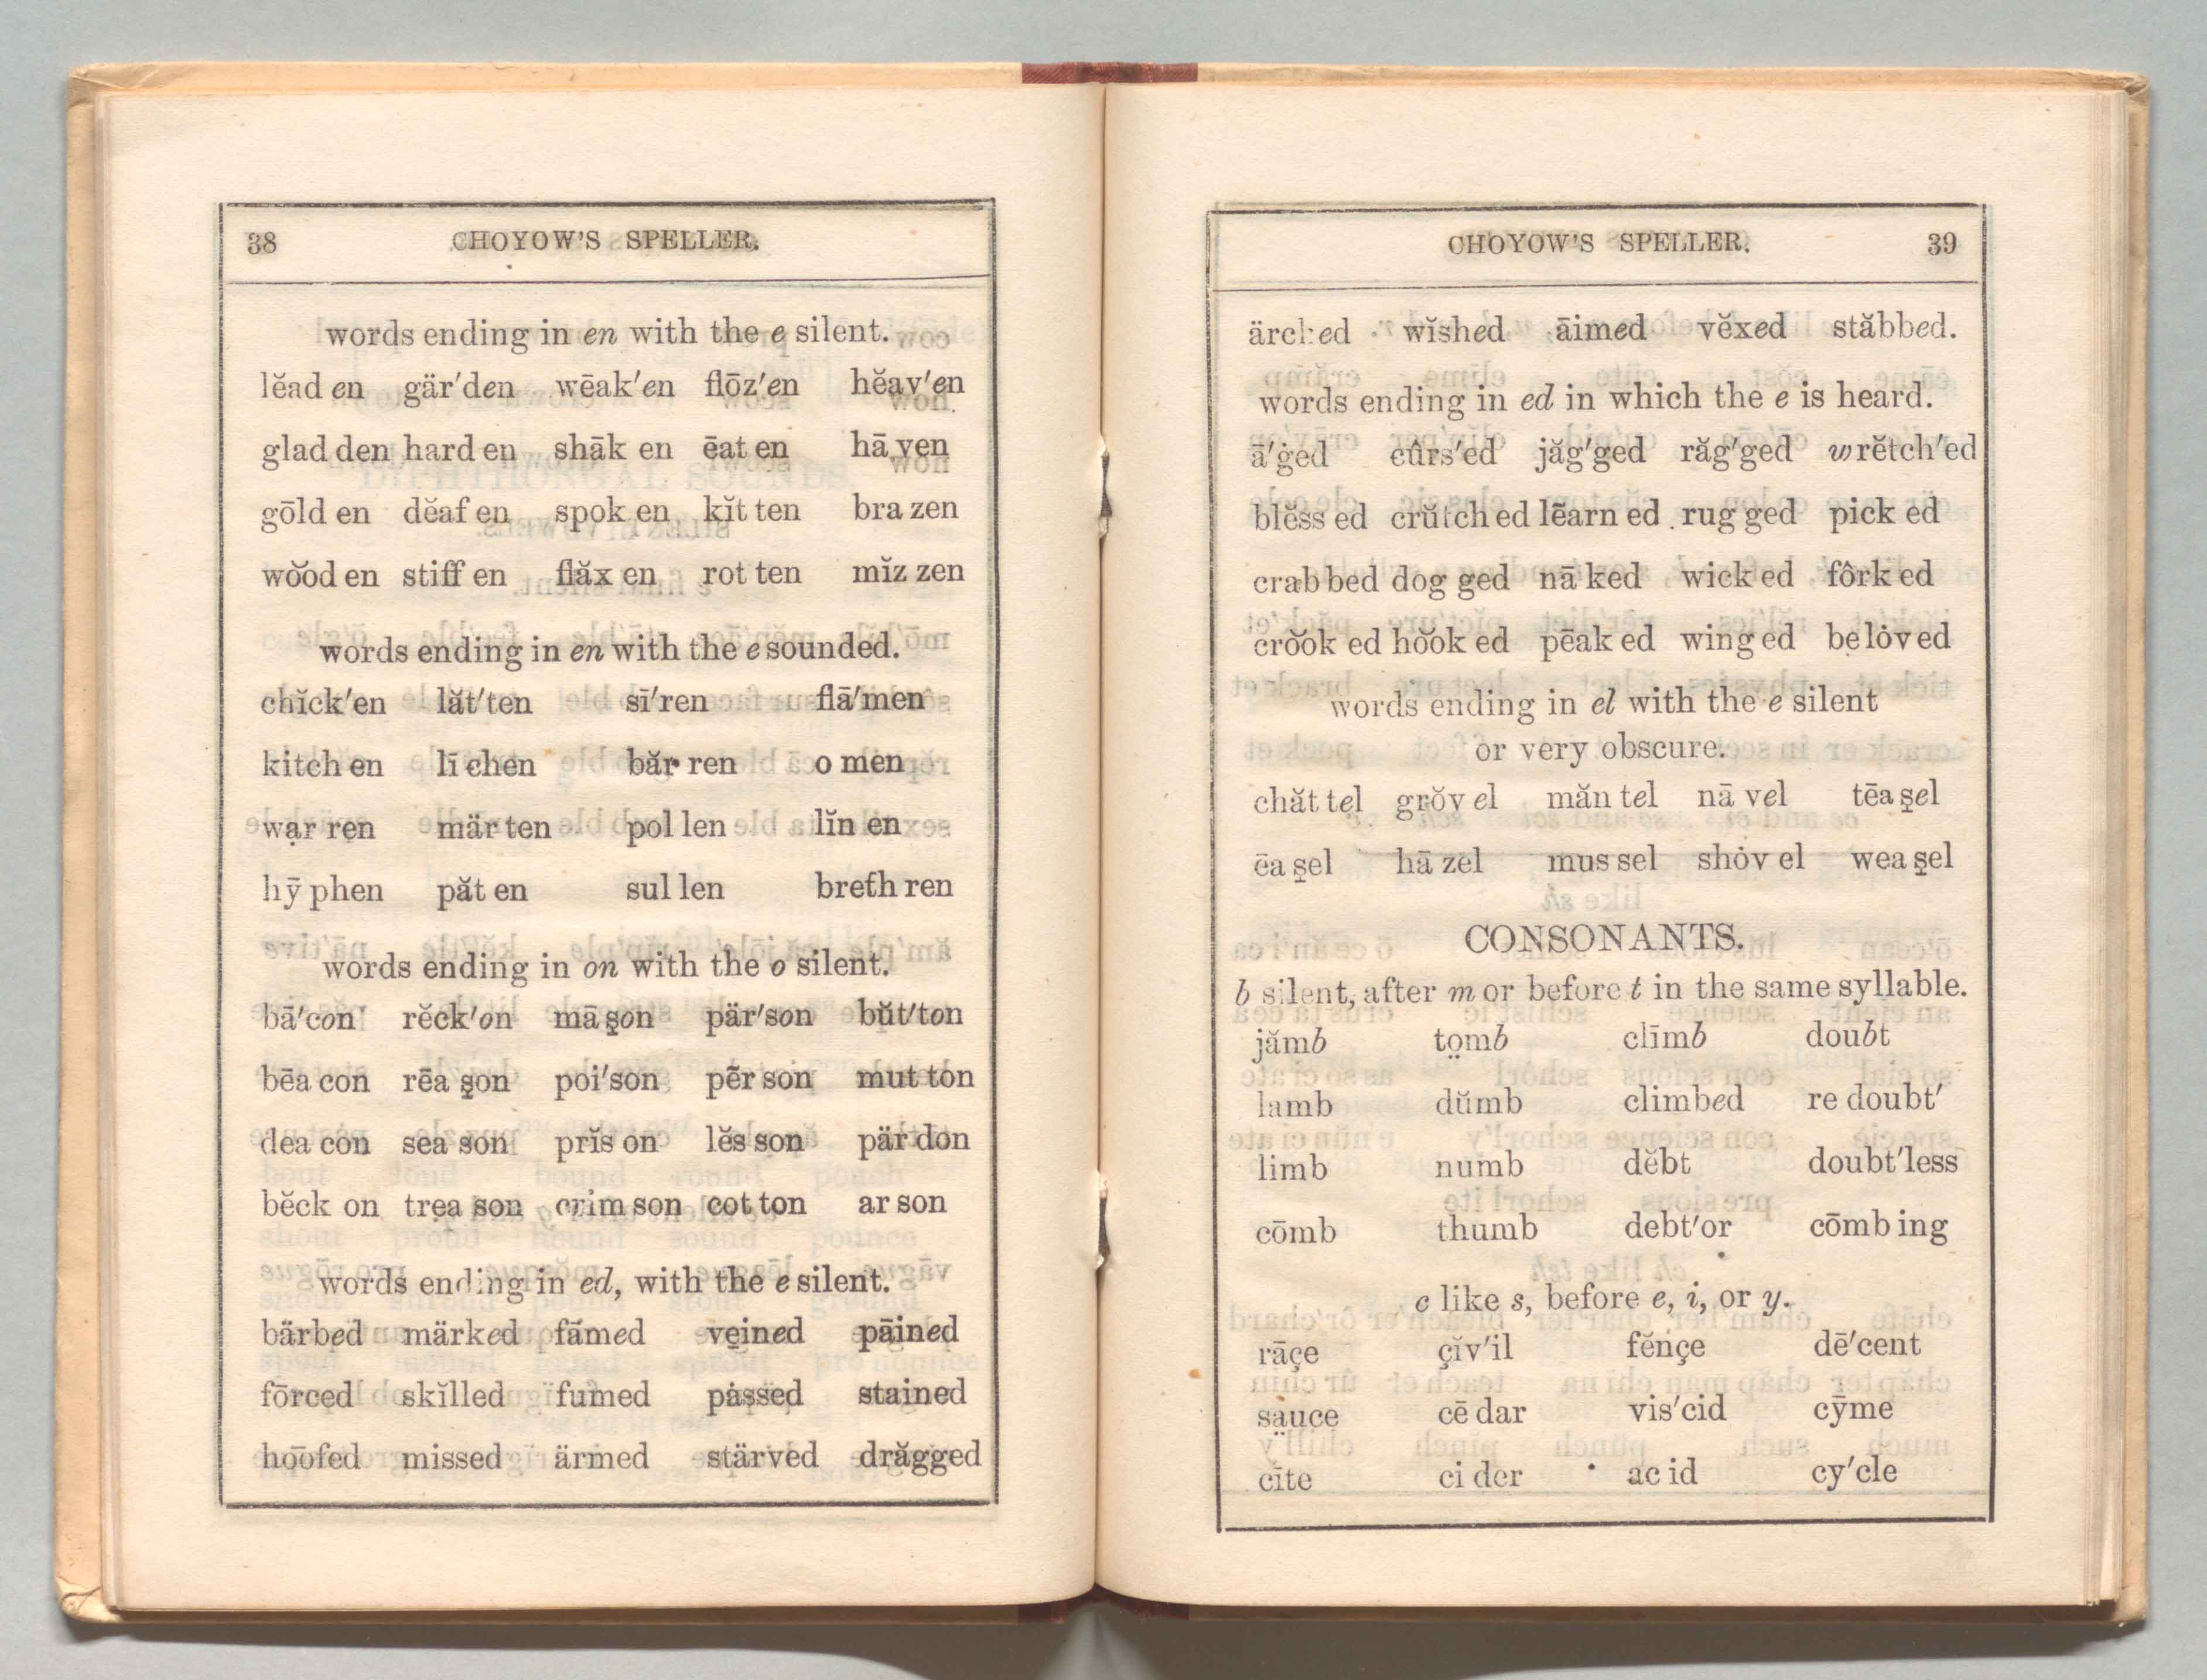 38 CHOYOW'S SPELLER.
words ending in en with the e silent.
lĕad en gär′den wēak′en flōz′en hĕav′en
glad den hard en shāk en ēat en hā ven
gōld en dĕaf en spok en kĭt ten bra zen
wo͝od en stiff en flăx en rot ten mĭz zen
words ending in en with the e sounded.
chĭck′en lăt′ten sī′ren flā′men
kitch en lī chen băr ren o men
wạr ren mär ten pol len lĭn en
hȳ phen păt en sul len breth ren
words ending in on with the o silent.
bā′con rĕck′on mā s̱on pär′son bŭt′ton
bēa con rēa s̱on poi′son pẽr son mut ton
dea con sea son prĭs on lĕs son pär don
bĕck on trea son crim son cot ton ar son
words ending in ed, with the e silent.
bärbed märked fāmed ve̱ined pāined
fōrced skĭlled fumed pȧssed stained
ho͞ofed missed ärmed stärved drăgged
CHOYOW'S SPELLER. 39
ärched wĭshed āimed vĕxed stăbbed.
words ending in ed in which the e is heard.
ā′ġed cûrs′ed jăg′ged răg′ged wrĕtch′ed
blĕss ed crŭtch ed lẽarn ed rug ged pick ed
crab bed dog ged nā ked wick ed fôrk ed
cro͝ok ed ho͝ok ed pēak ed wing ed be lȯv ed
words ending in el with the e silent
or very obscure.
chăt tel grŏv el măn tel nā vel tēa s̱el
ēa s̱el hā zel mus sel shȯv el wea s̱el
CONSONANTS.
b silent, after m or before t in the same syllable.
jămb to̤mb clīmb doubt
lamb dŭmb climbed re doubt′
limb numb dĕbt doubt′less
cōmb thumb debt′or cōmb ing
c like s, before e, i, or y.
rāçe çĭv′il fĕnçe dē′cent
sa̤uce cē dar vis′cid cȳme
cīte ci der ac id cy′cle